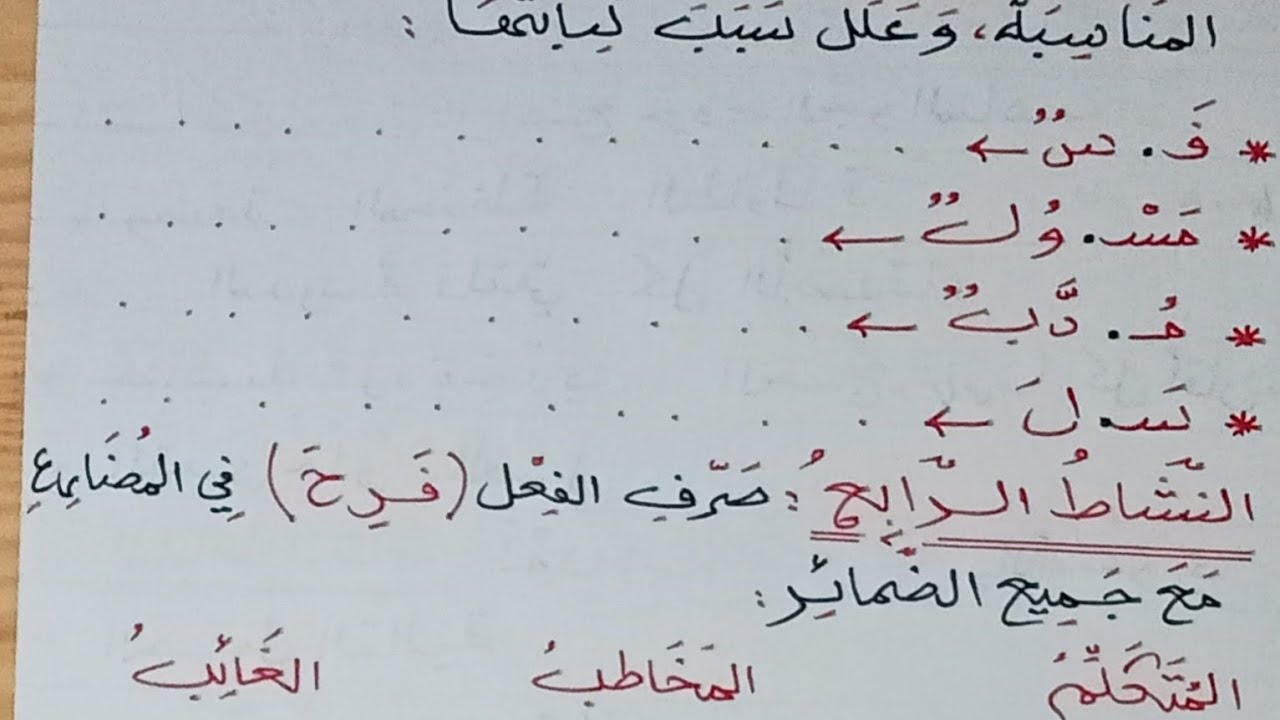 المُنَاسِبَة، وَعَلِّل سَبَبَ كِتَابَتِهَا :
* فَ . سٌ ← . . . . . . . . . .
* مَسْـ . وُلٌ ← . . . . . . . . . .
* مُـ . دَّبٌ ← . . . . . . . . . .
* سَـ . لَ ← . . . . . . . . . .
النَّشَاطُ الرَّابِعُ : صَرِّفِ الفِعْل (فَرِحَ) فِي المُضَارِعِ
مَعَ جَمِيعِ الضَّمائِرِ :
المُتَكَلِّمُ المُخَاطَبُ الغَائِبُ